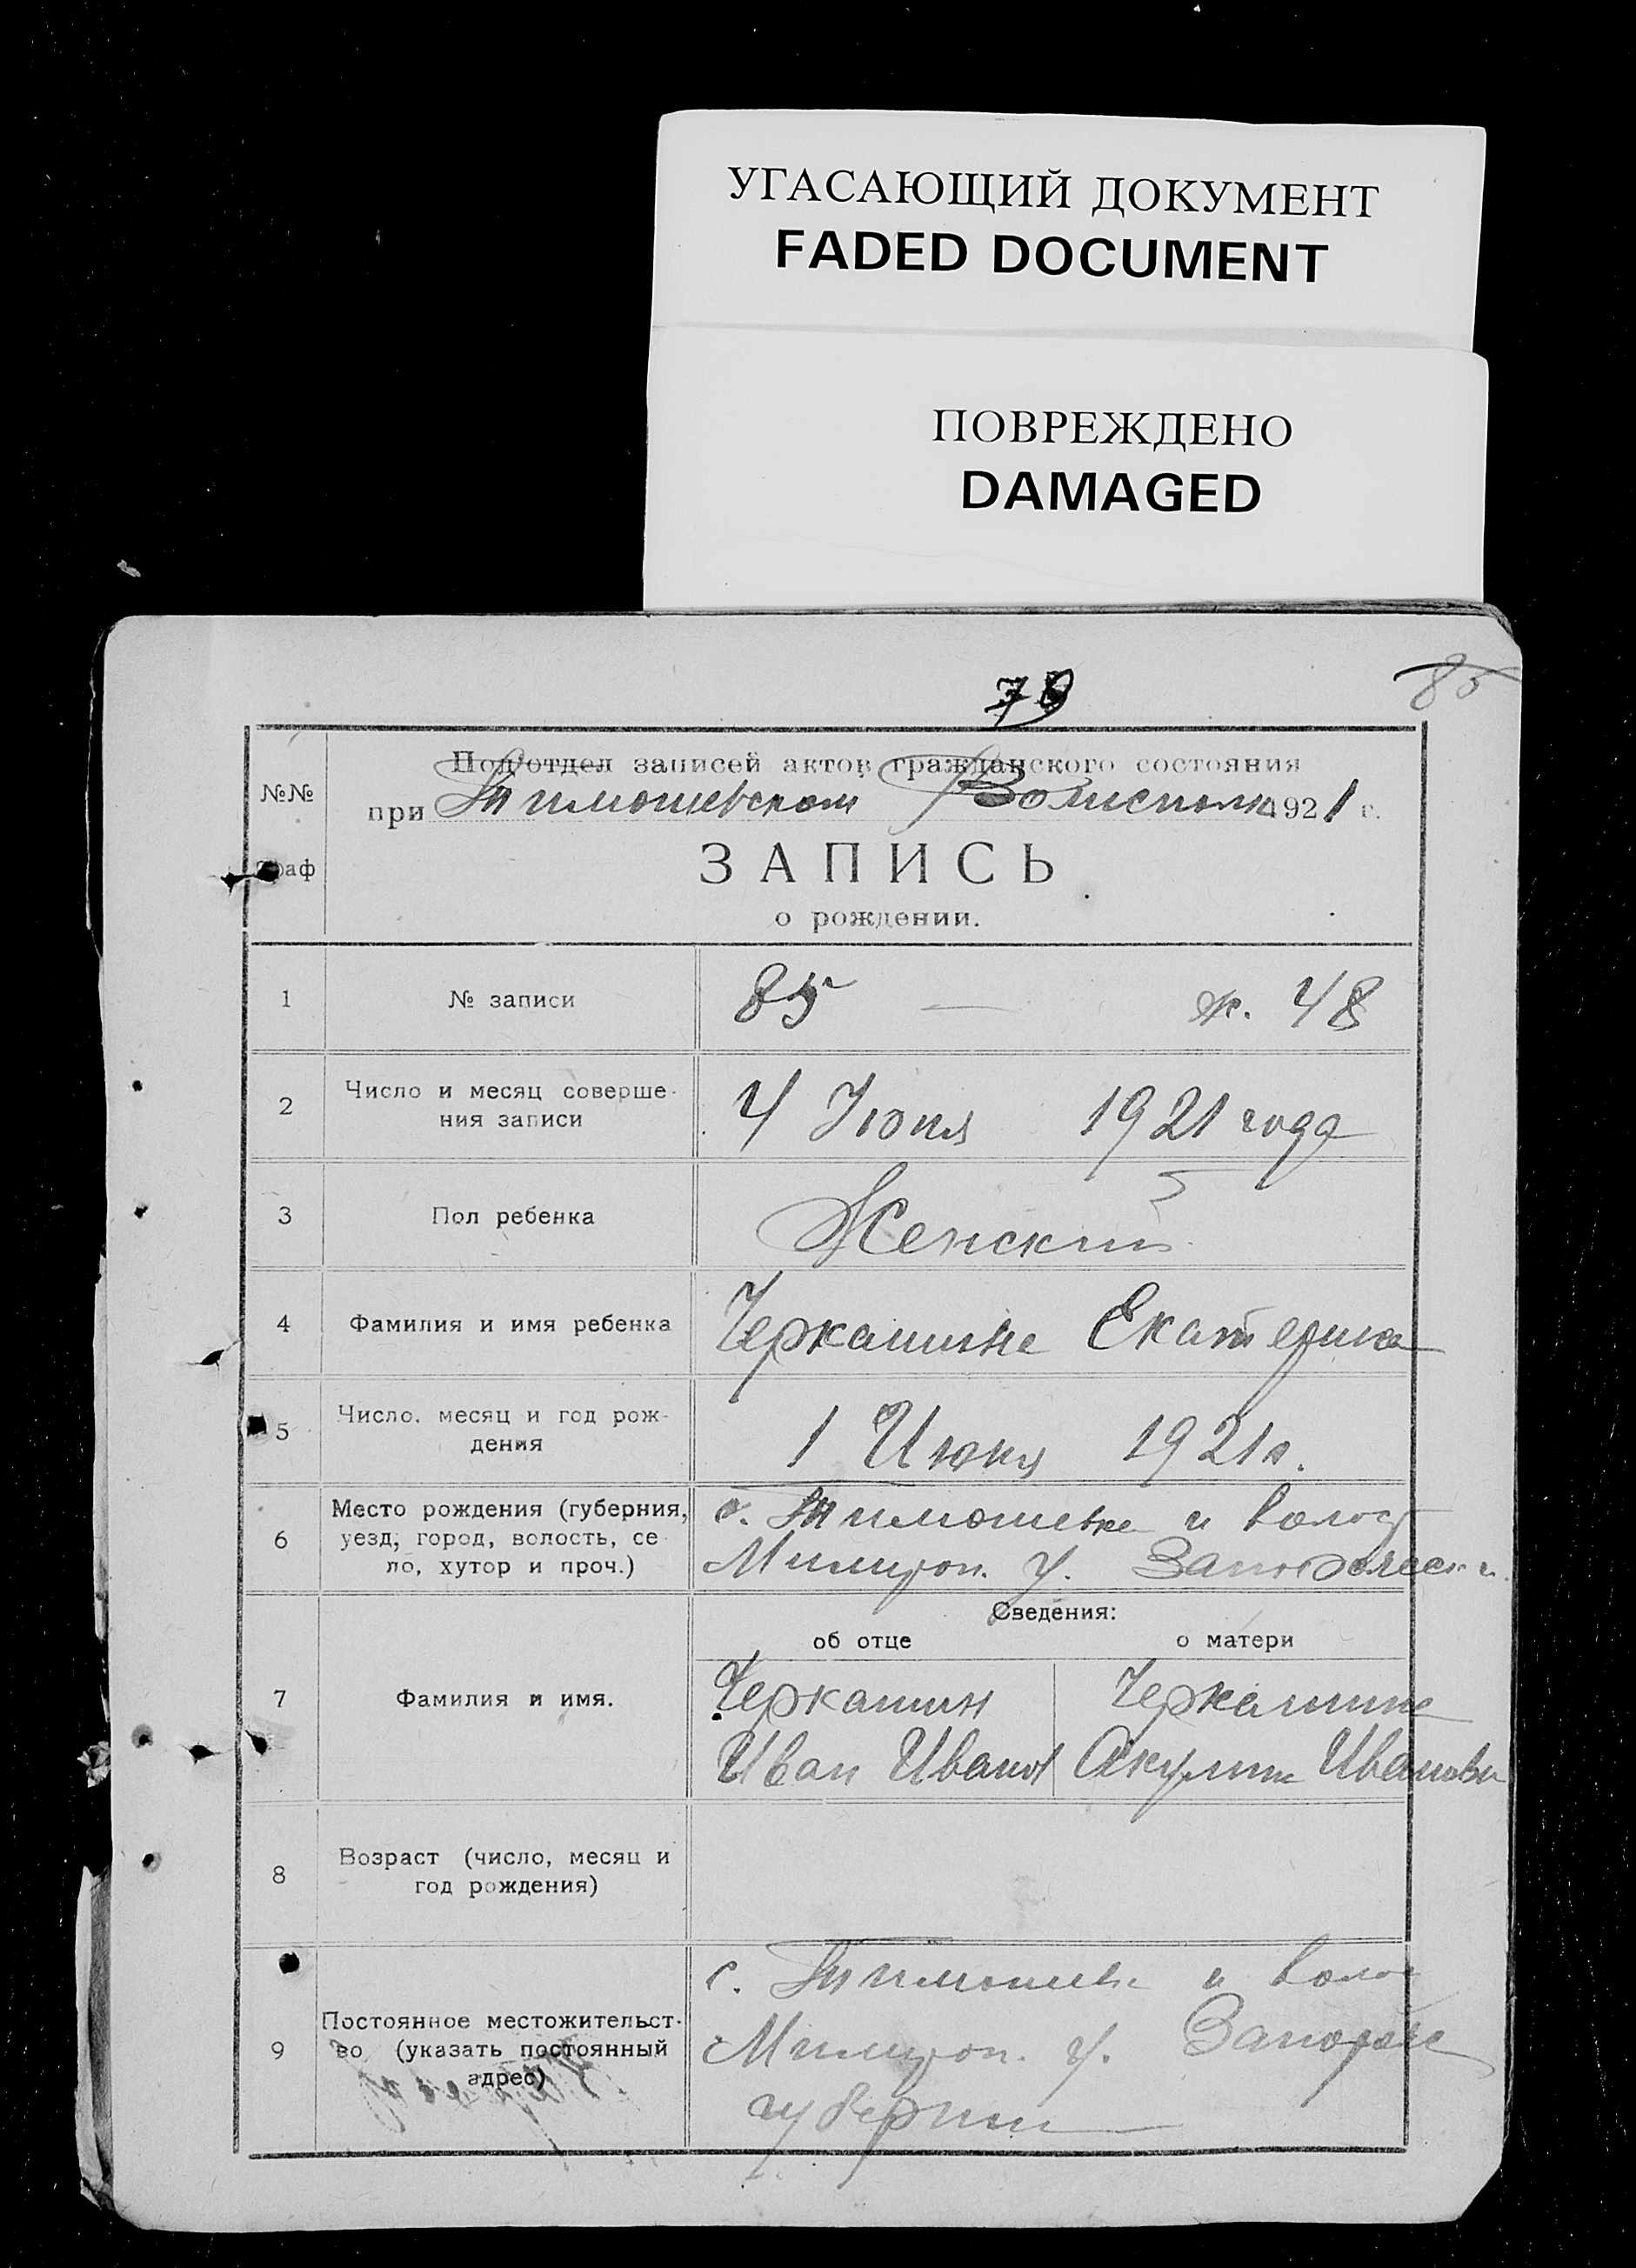 УГАСАЮЩИЙ ДОКУМЕНТ
FADED DOCUMENT
ПОВРЕЖДЕНО
DAMAGED
79
85
№№
граф
Под'отдел записей актов гражданского состояния
при Тимошевском Волисполк 1921 г.
ЗАПИСЬ
о рождении.
1 № записи 85 — ж. 48
2 Число и месяц соверше-
ния записи
4 Июня 1921 года
3 Пол ребенка Женский
4 Фамилия и имя ребенка Черкашина Екатерина
5 Число, месяц и год рож-
дения
1 Июня 1921 г.
6 Место рождения (губерния,
уезд, город, волость, се
ло, хутор и проч.)
с. Тимошевка и волос
Мелитоп. у.
Сведения:
об отце о матери
7 Фамилия и имя.
Черкашин
Иван Иванов
Черкашина
Акулина Иванов
8 Возраст (число, месяц и
год рождения)
9 Постоянное местожительст-
во (указать постоянный
адрес)
с. Тимошевк и волос
Мелитоп. у. Запорож
губернии